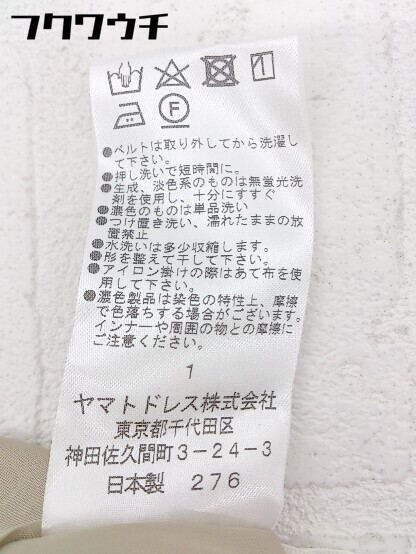 フクワウチ
F
●ベルトは取り外してから洗濯し
て下さい。
●押し洗いで短時間に。
●生成、淡色系のものは無蛍光洗
剤を使用し、十分にすすぐ
●濃色のものは単品洗い
●つけ置き洗い、濡れたままの放
置禁止
●水洗いは多少収縮します。
●形を整えて干して下さい。
●アイロン掛けの際はあて布を使
用して下さい。
●濃色製品は染色の特性上、摩擦
で色落ちする場合がございます。
インナーや周囲の物との摩擦に
ご注意ください。
1
ヤマトドレス株式会社
東京都千代田区
神田佐久間町3-24-3
日本製 276